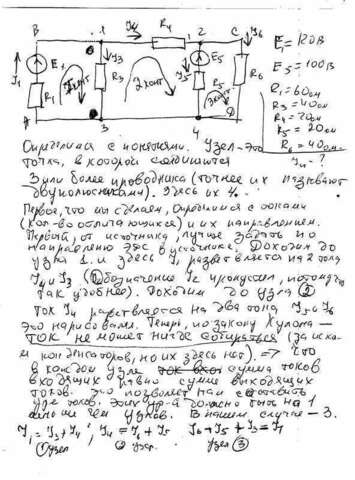 B 1 I4 R4 2 C I6
E1 I3 E5
I1 R1 1 конт R3 2 конт I5 R5 3 конт R6
A 3 4 D
E1 = 120В
E5 = 100В
R1 = 60 ом
R3 = 40 ом
R4 = 20 ом
R5 = 20 ом
R6 = 40 ом
I4 - ?
Определимся с понятиями. Узел - это
точка, в которой соединяются
3 или более проводника (точнее их называют
двухполюсниками). Здесь их 4.
Первое, что мы сделаем, определимся с токами
(кол-во отличающихся) и их направлением.
Первый, от источника, лучше задать по
направлению эдс в источнике. Доходим до
узла 1 и здесь I1 разветвляется на 2 тока
I4 и I3 (Обозначение I2 пропустил, потому что
так удобнее). Доходим до узла 2
ток I4 разветвляется на два тока I5 и I6
это нарисовали. Теперь, по закону Кулона -
ток не может нигде собираться (за иск-
м конденсаторов, но их здесь нет). => Что
в каждом узле сумма токов
входящих равно сумме выходящих
токов. Это позволяет нам составить
ур-я токов. Этих ур-й должно быть на 1
меньше чем узлов. В нашем случае - 3.
I1 = I3 + I4; I4 = I6 + I5 I6 + I5 + I3 = I1
1 узел 2 узел узел 3